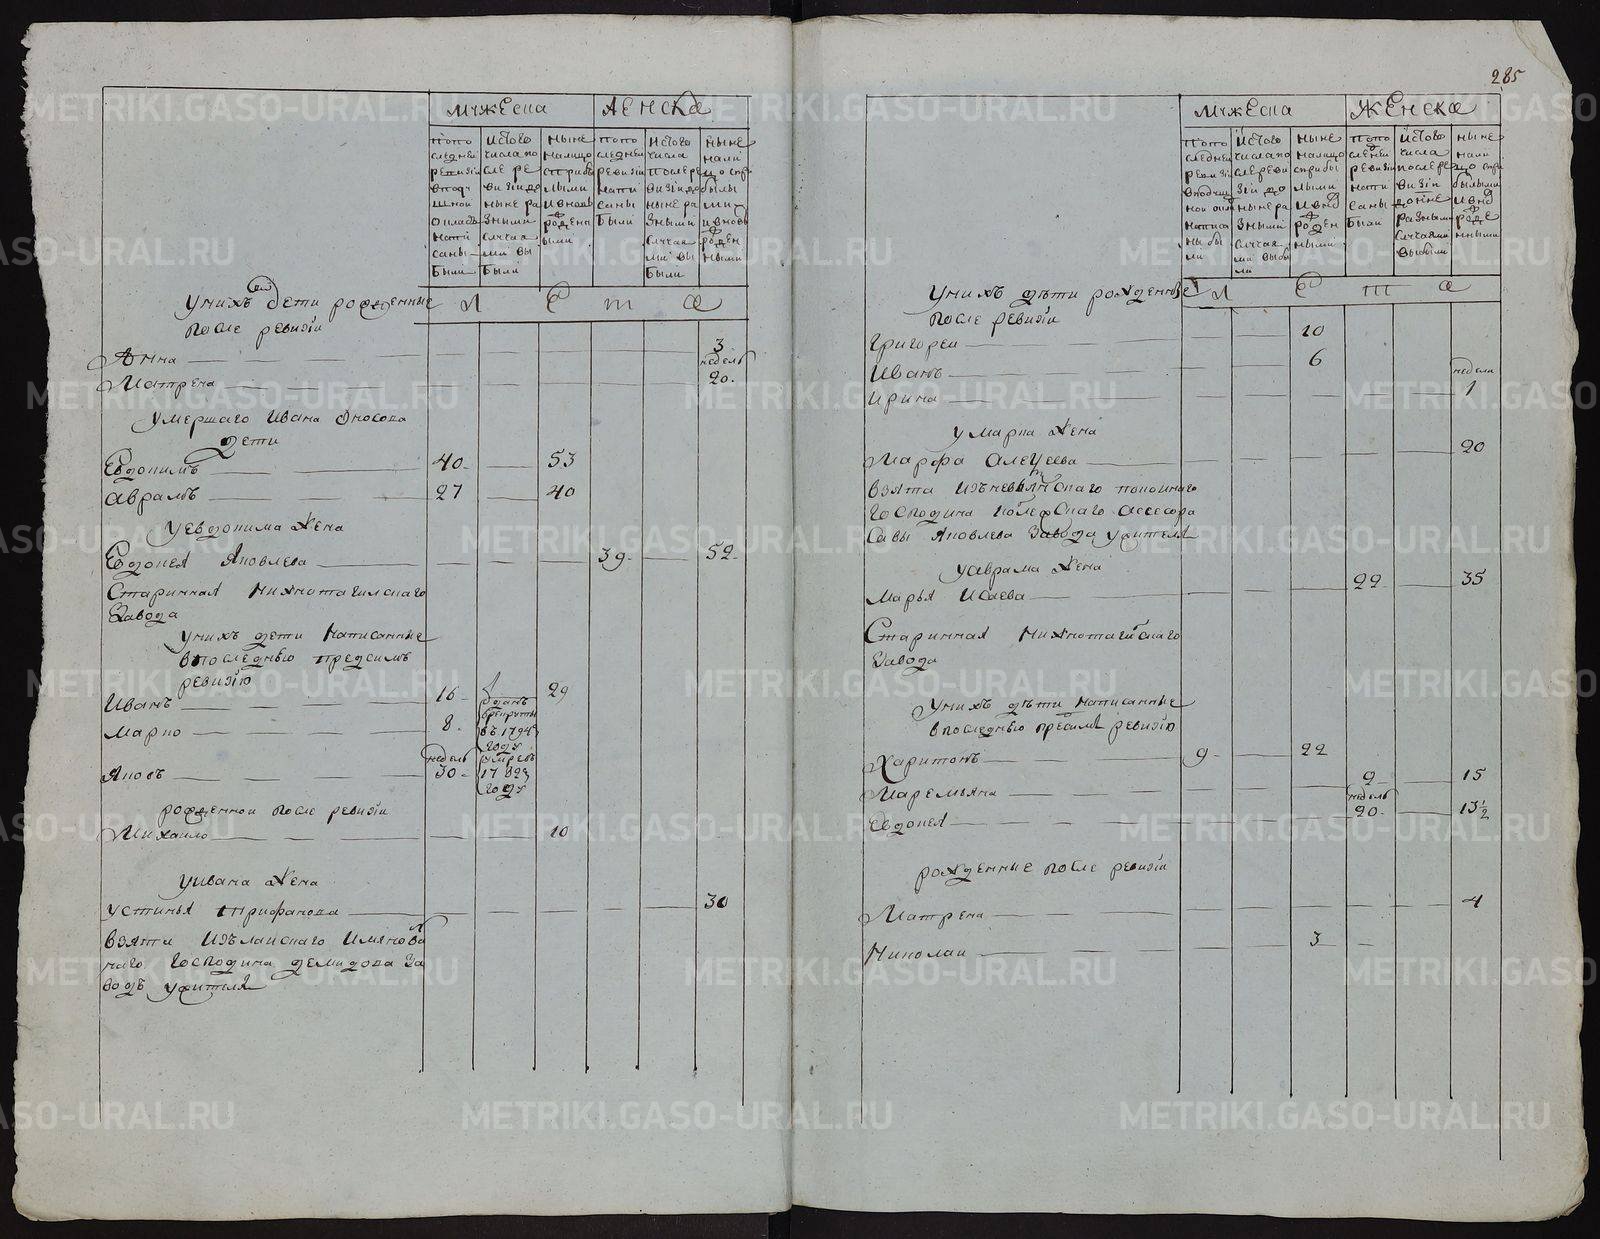 мужеска
женска
попо
следнеи
ревизіи
вподу
шной
окладъ
напи
саны
были
истого
числа по
сле ре
визіи до
ныне ра
зными
случая
ми вы
были
ныне
налицо
сприбы
лыми
ивновь
рожден
ными
попо
следнеи
ревизіи
напи
саны
были
истого
числа
послере
визіи до
ныне ра
зными
случая
ми вы
были
ныне
нали
цо спри
былы
ми
ивновь
рожден
ными
Л Е т а
унихъ дети рожденные
после ревизіи
Анна 3
недель
Матрена 20.
умершаго Ивана Фносова
дети
Евдокимъ 40 53
Аврамъ 27 40
уевдокима жена
Евдокея Яковлева 39 52
Старинная Нижнотагилскаго
Завода
унихъ дети написанные
впоследнью предсимъ
ревизію
Иванъ 16 29
Марко 8
отданъ
врекруты
въ 1794
году
недель
Яковъ 30
умреъ
1782
году
рожденной после ревизіи
Михаило 10
уивана жена
устинья Трифанова 30
взята изълайскаго имянова
наго Господина демидова за
водъ ужителя
285
мужеска
женска
попо
следнеи
ревизіи
вподуш
ной окла
написа
ны бы
ли
истого
числа по
слереви
зіи до
ныне ра
зными
случая
ми выбы
ли
ныне
налицо
сприбы
лыми
ивно
рожден
ными
попо
следнеи
ревизіи
напи
саны
были
истого
числа
послере
визіи
доныне
разными
случаями
выбыли
ныне
нали
цо спри
былыми
ивно
рожде
нными
Л Е т а
унихъ дѣти рожденные
после ревизіи
Григореи 10
Иванъ 6
недели
Ирина 1
у Марка жена
Марфа Алеѯеева 20
взята изъневьянскаго покоинаго
Господина колежскаго асесора
Савы Яковлева Завода ужителя
уаврама жена
Марья Исаева 22 35
Старинная Нижнотагилскаго
Завода
унихъ дѣти написанные
впоследнью пресимъ ревизію
Харитонъ 9 22
Маремьяна 2 15
недель
Евдокея 20 13 1/2
рожденные после ревизіи
Матрена 4
Николаи 3
METRIKI.GASO-URAL.RU